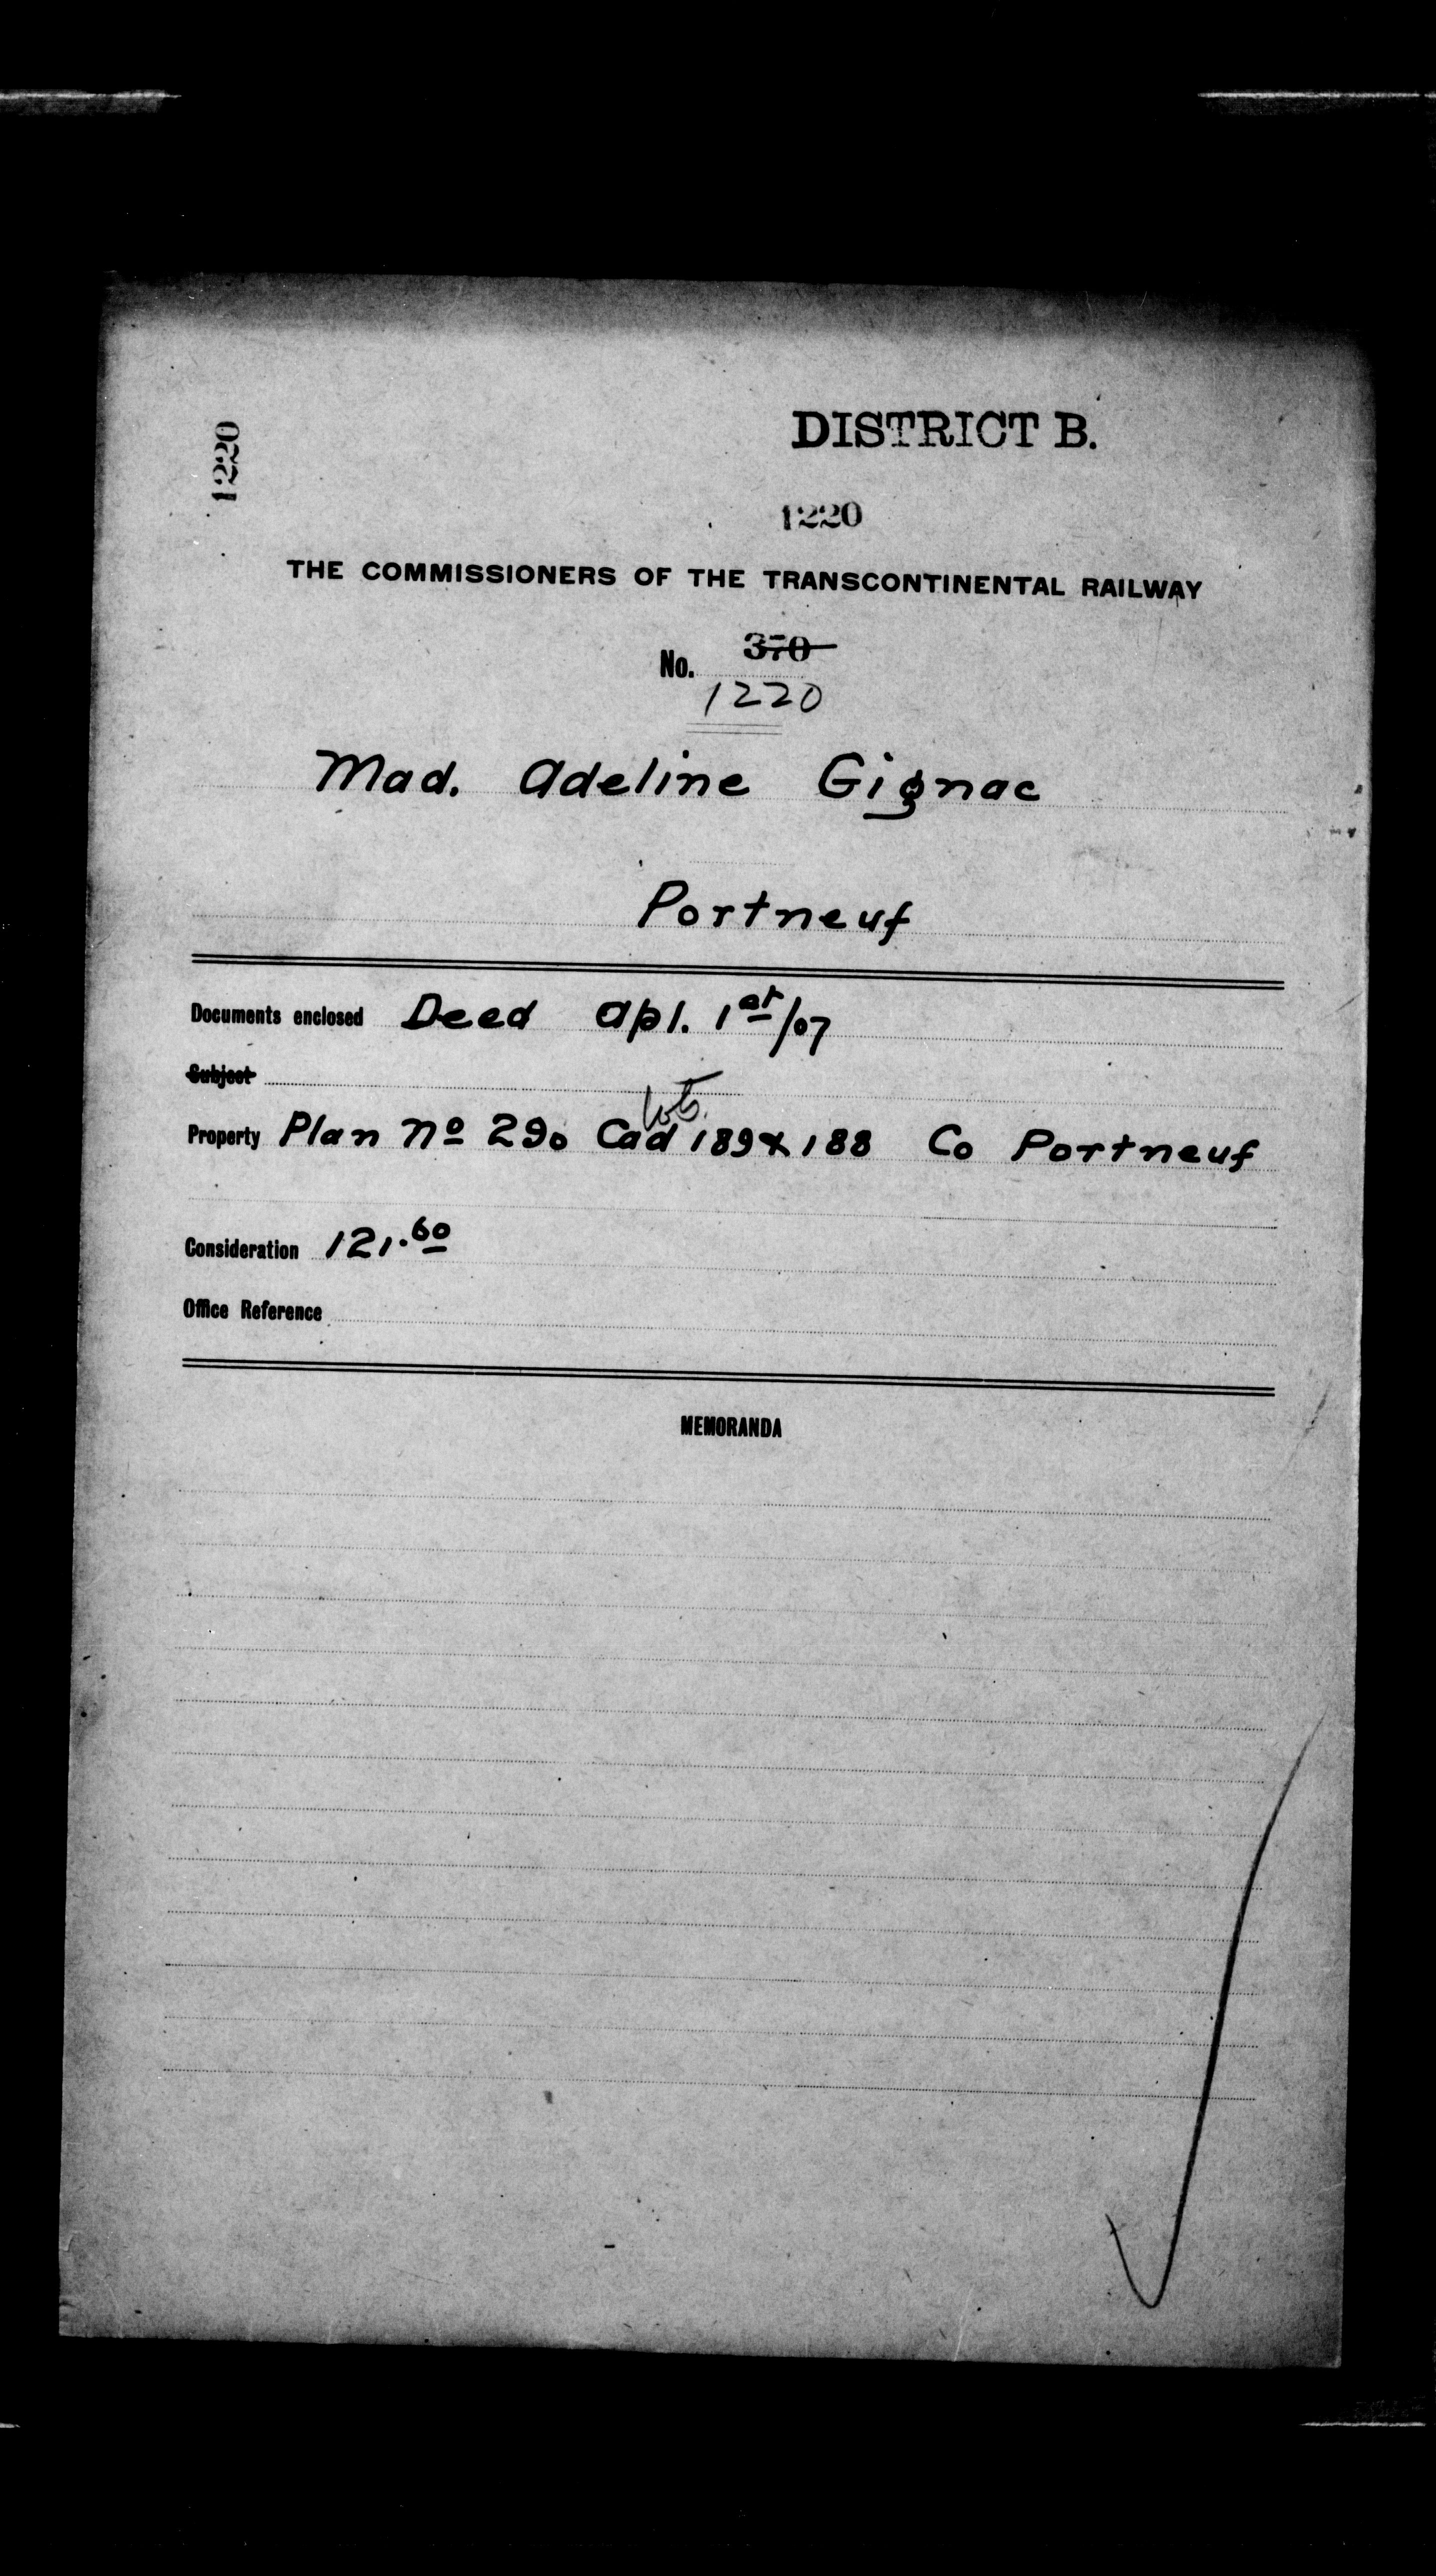 1220
DISTRICT B.
1220
THE COMMISSIONERS OF THE TRANSCONTINENTAL RAILWAY
No. 370
1220
Mad. Adeline Gignac
Portneuf
Documents enclosed Deed Apl. 1st/07
Subject
lots
Property Plan No 290 Cad 189 & 188 Co Portneuf
Consideration 121.60
Office Reference
MEMORANDA